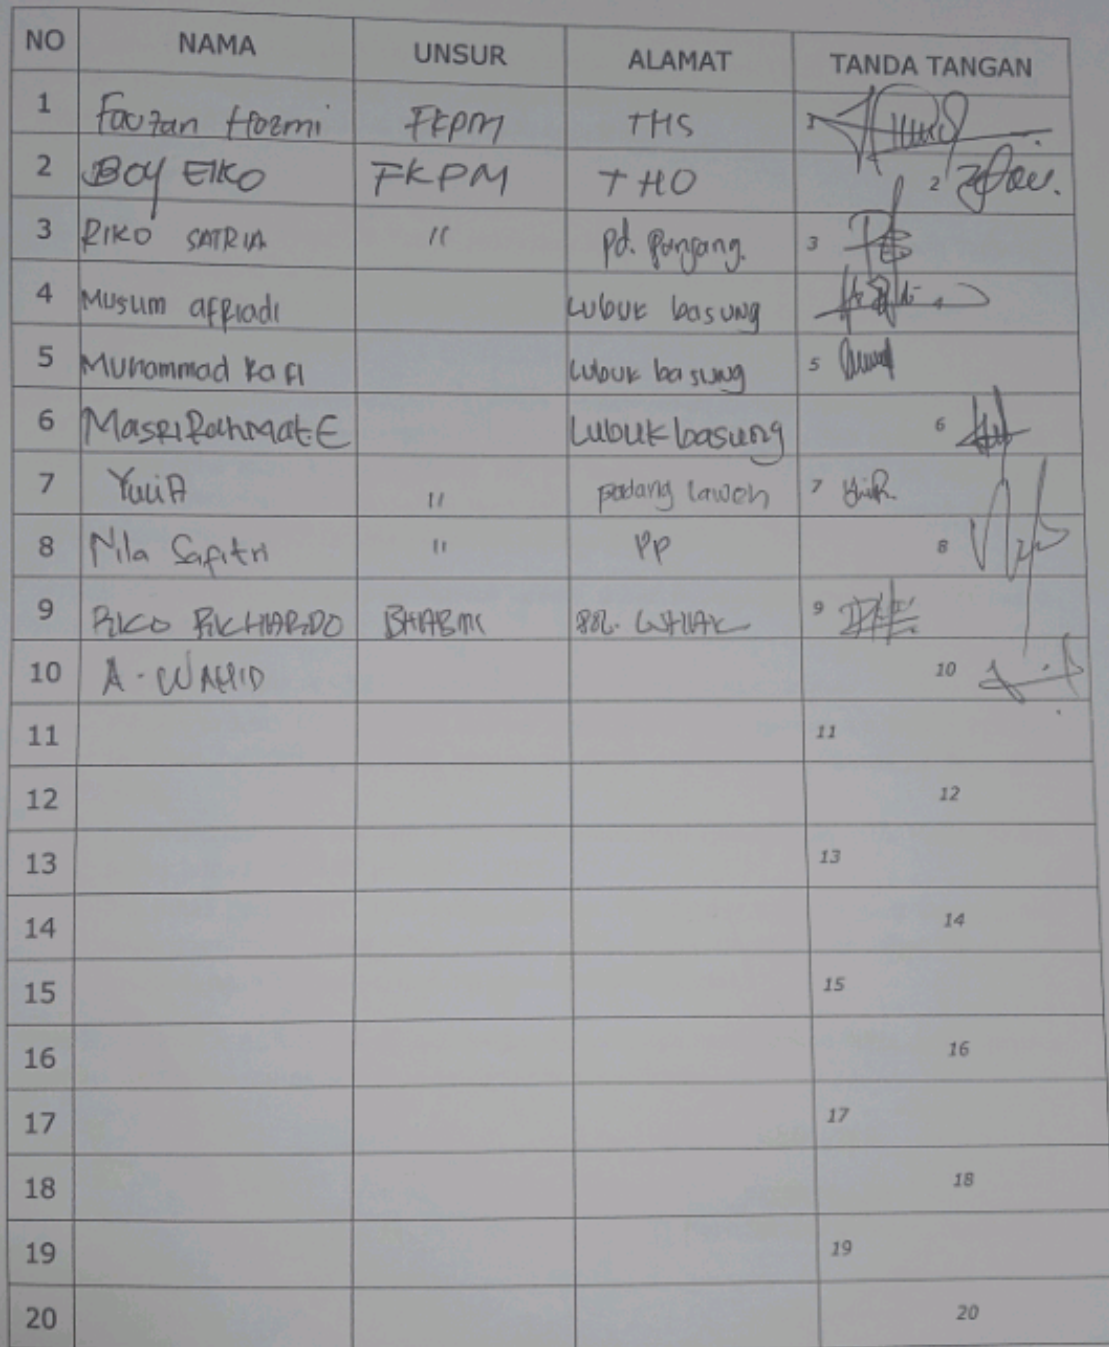 NO NAMA UNSUR ALAMAT TANDA TANGAN
1 Fauzan Hozmi FKPM THS 1
2 BOY EIKO FKPM THO 2
3 RIKO SATRIA " Pd. Panjang. 3
4 Musum afriadi Lubuk basung
5 Muhammad Rafi Lubuk basung 5
6 Masri Rahmat E Lubuk basung 6
7 YuliA " padang laweh 7
8 Nila Safitri " PP 8
9 RICO RICHARDO 9
10 A. WAHID 10
11 11
12 12
13 13
14 14
15 15
16 16
17 17
18 18
19 19
20 20